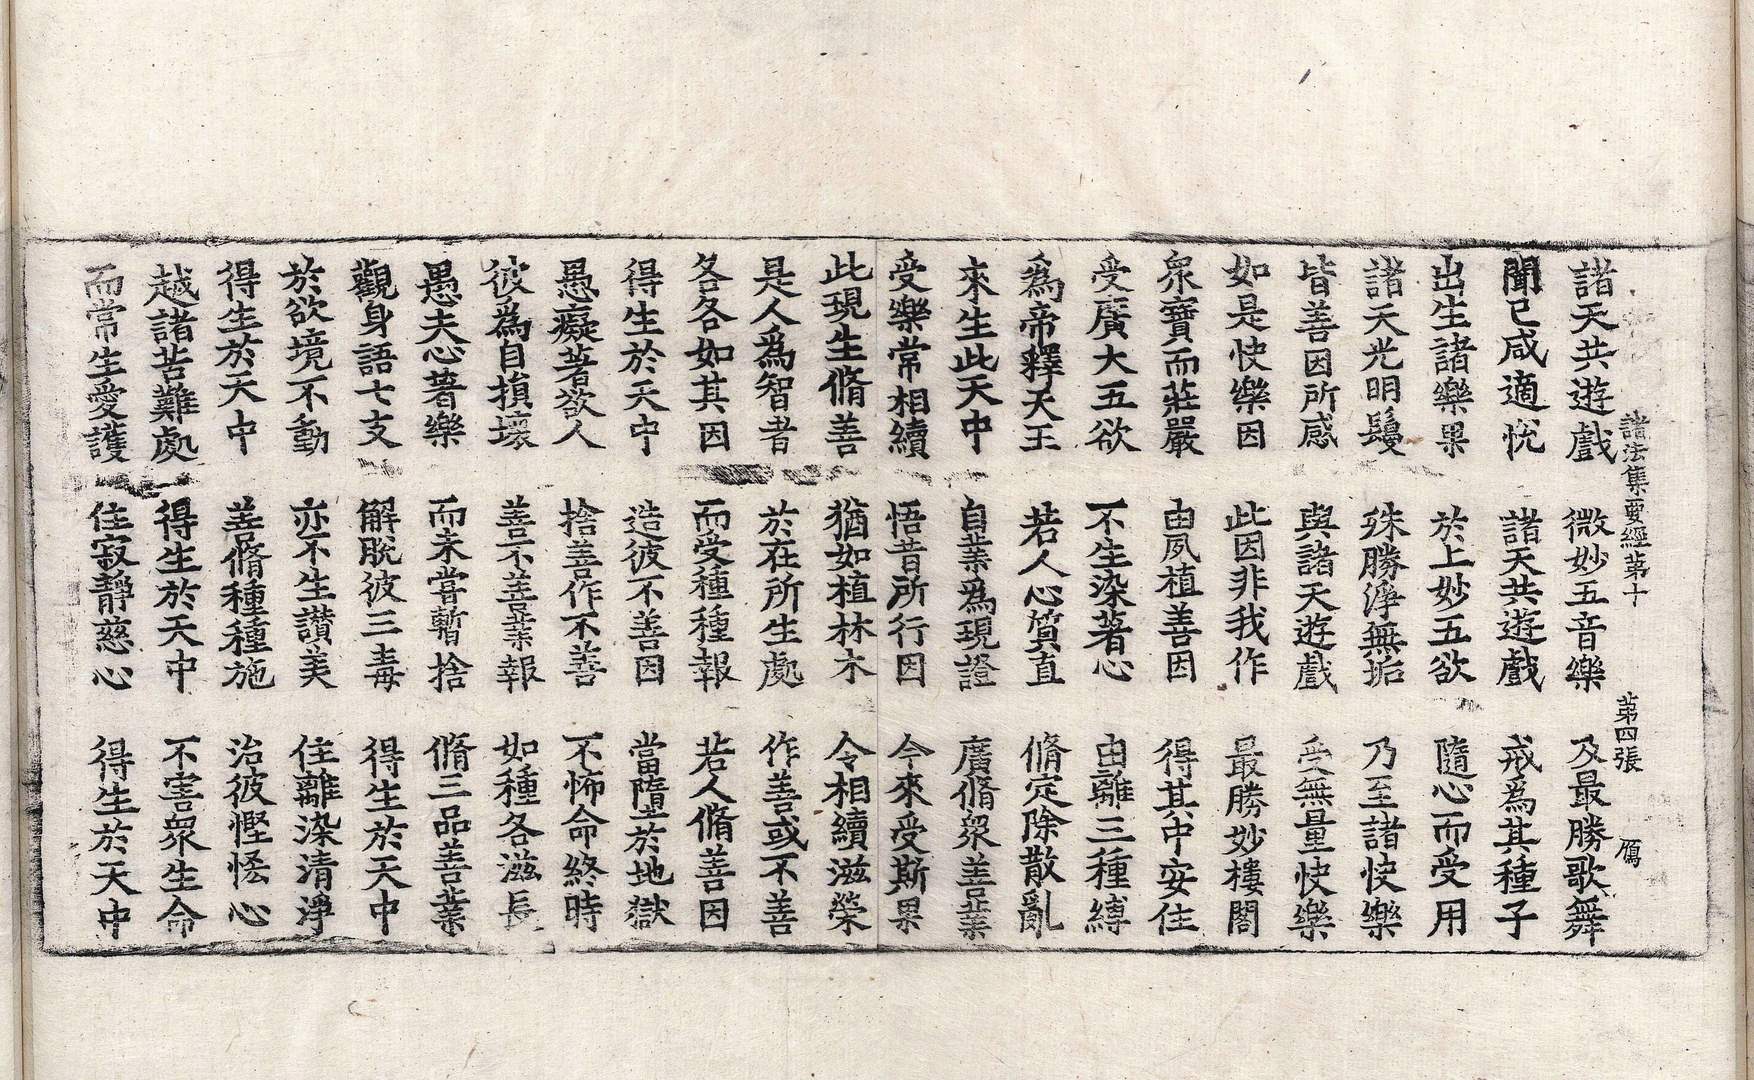 諸法集要經第十 第四張 鴈
諸天共遊戲 微妙五音樂 及最勝歌舞
聞已咸適悅 諸天共遊戲 戒為其種子
出生諸樂果 於上妙五欲 隨心而受用
諸天光明鬘 殊勝淨無垢 乃至諸快樂
皆善因所感 與諸天遊戲 受無量快樂
如是快樂因 此因非我作 最勝妙樓閣
衆寶而莊嚴 由夙植善因 得其中安住
受廣大五欲 不生染著心 由離三種縛
為帝釋天王 若人心質直 脩定除散亂
來生此天中 自業為現證 廣脩衆善業
受樂常相續 悟昔所行因 今來受斯果
此現生脩善 猶如植林木 令相續滋榮
是人為智者 於在所生處 作善或不善
各各如其因 而受種種報 若人脩善因
得生於天中 造彼不善因 當墮於地獄
愚癡著欲人 捨善作不善 不怖命終時
彼為自損壞 善不善業報 如種各滋長
愚夫心著樂 而未甞暫捨 脩三品善業
觀身語七支 解脫彼三毒 得生於天中
於欲境不動 亦不生讃美 住離染清淨
得生於天中 善脩種種施 治彼慳悋心
越諸苦難處 得生於天中 不害衆生命
而常生愛護 住寂靜慈心 得生於天中